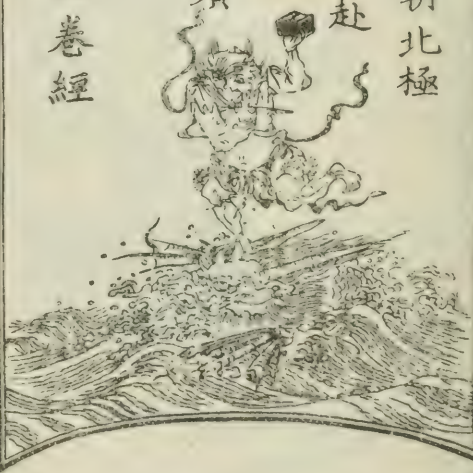 北極
赴
卷經